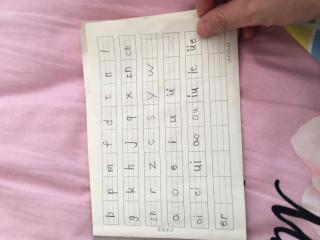 b p m f d t n l
g k h j q x zh ch
sh r z c s y w
a o e i u ü
ai ei ui ao ou iu ie üe
er